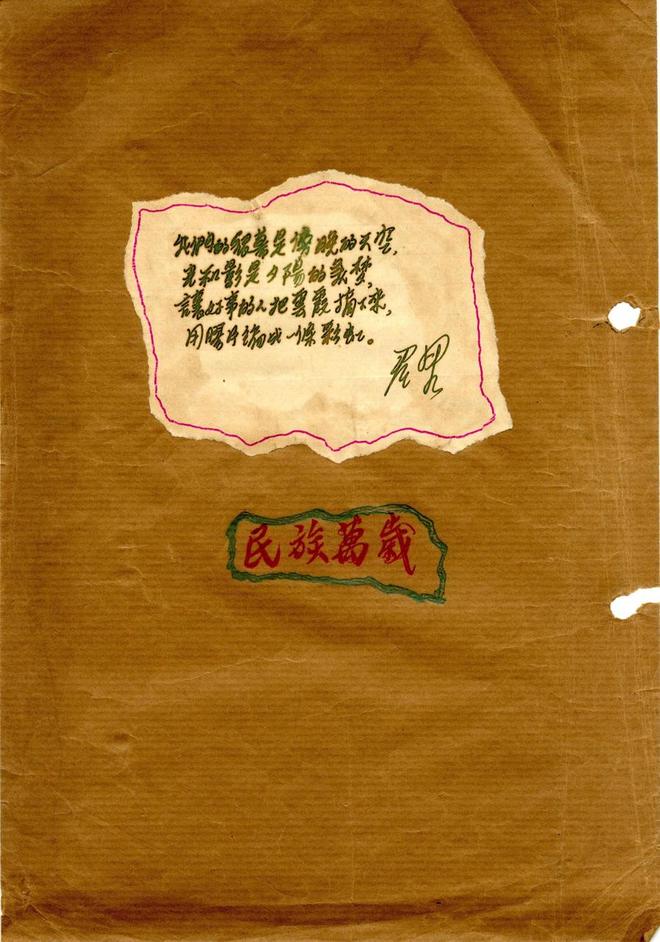 我們的銀幕是傍晚的天空,
光和影是夕陽的美梦,
讓好事的人把雲霞摘下來,
用膠片編成一條彩虹。
民族萬歲